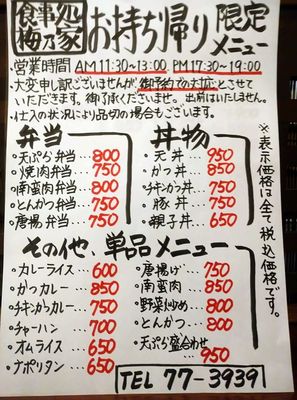 食事処
梅乃家
お持ち帰り
限定
メニュー
・営業時間 AM11:30~13:00. PM17:30~19:00
・大変申し訳ございませんが、御予約での対応とさせて
いただきます。御了承くださいませ。出前はいたしません。
・仕入の状況により品切の場合もございます。
弁当
・天ぷら弁当…800
・焼肉弁当…750
・南蛮弁当…800
・とんかつ弁当…750
・唐揚弁当…750
丼物
・天丼…950
・かつ丼…850
・チキンかつ丼…750
・豚丼…750
・親子丼…650
※表示価格は全て税込価格です。
その他、単品メニュー
・カレーライス…600
・かつカレー…850
・チキンかつカレー…750
・チャーハン…700
・オムライス…650
・ナポリタン…650
・唐揚げ…750
・南蛮…750
・野菜炒め…800
・とんかつ…800
・天ぷら盛合わせ
…950
TEL 77-3939